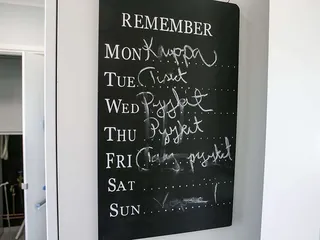 REMEMBER
MON Kauppa
TUE Tiset
WED Pyykit
THU Pyykit
FRI pyykit
SAT
SUN